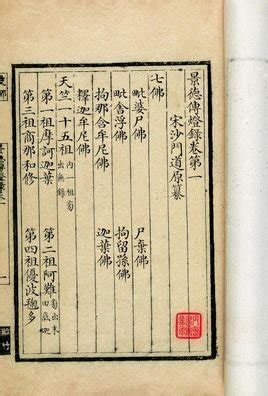 景德傳燈錄卷第一
宋沙門道原纂
七佛
毗婆尸佛　尸棄佛
毗舍浮佛　拘留孫佛
拘那含牟尼佛　迦葉佛
釋迦牟尼佛
天竺一十五祖內一祖旁出無錄
第一祖摩訶迦葉　第二祖阿難旁出末田底迦
第三祖商那和修　第四祖優波毱多